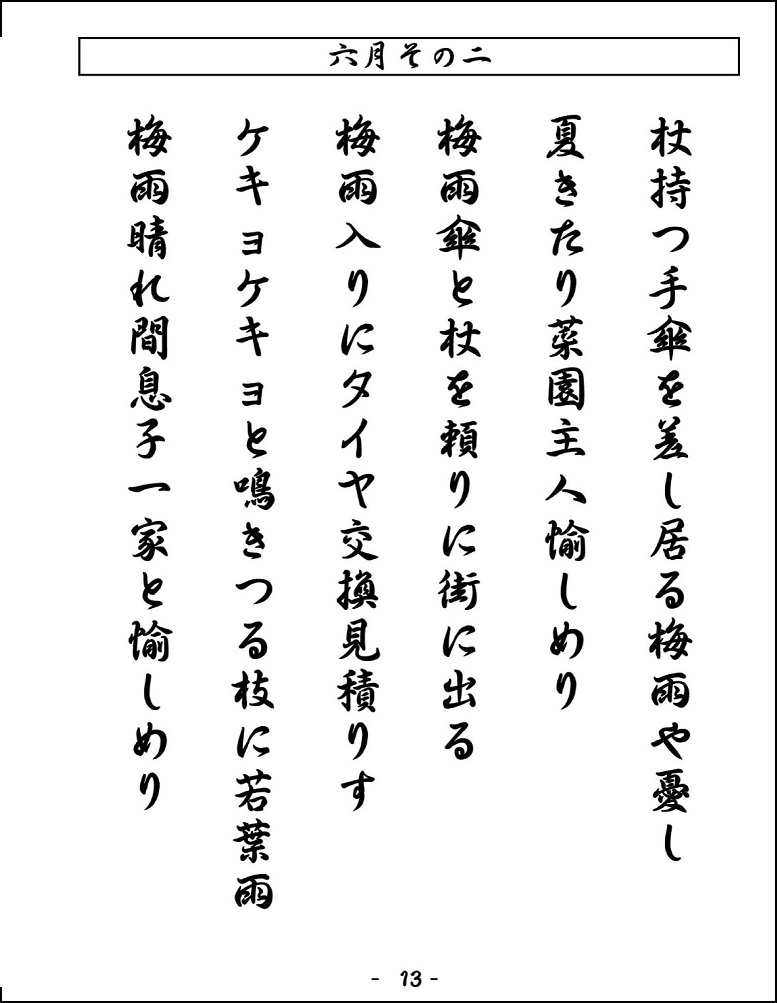 六月その二
杖持つ手傘を差し居る梅雨や憂し
夏きたり菜園主人愉しめり
梅雨傘と杖を頼りに街に出る
梅雨入りにタイヤ交換見積りす
ケキョケキョと鳴きつる枝に若葉雨
梅雨晴れ間息子一家と愉しめり
- 13 -